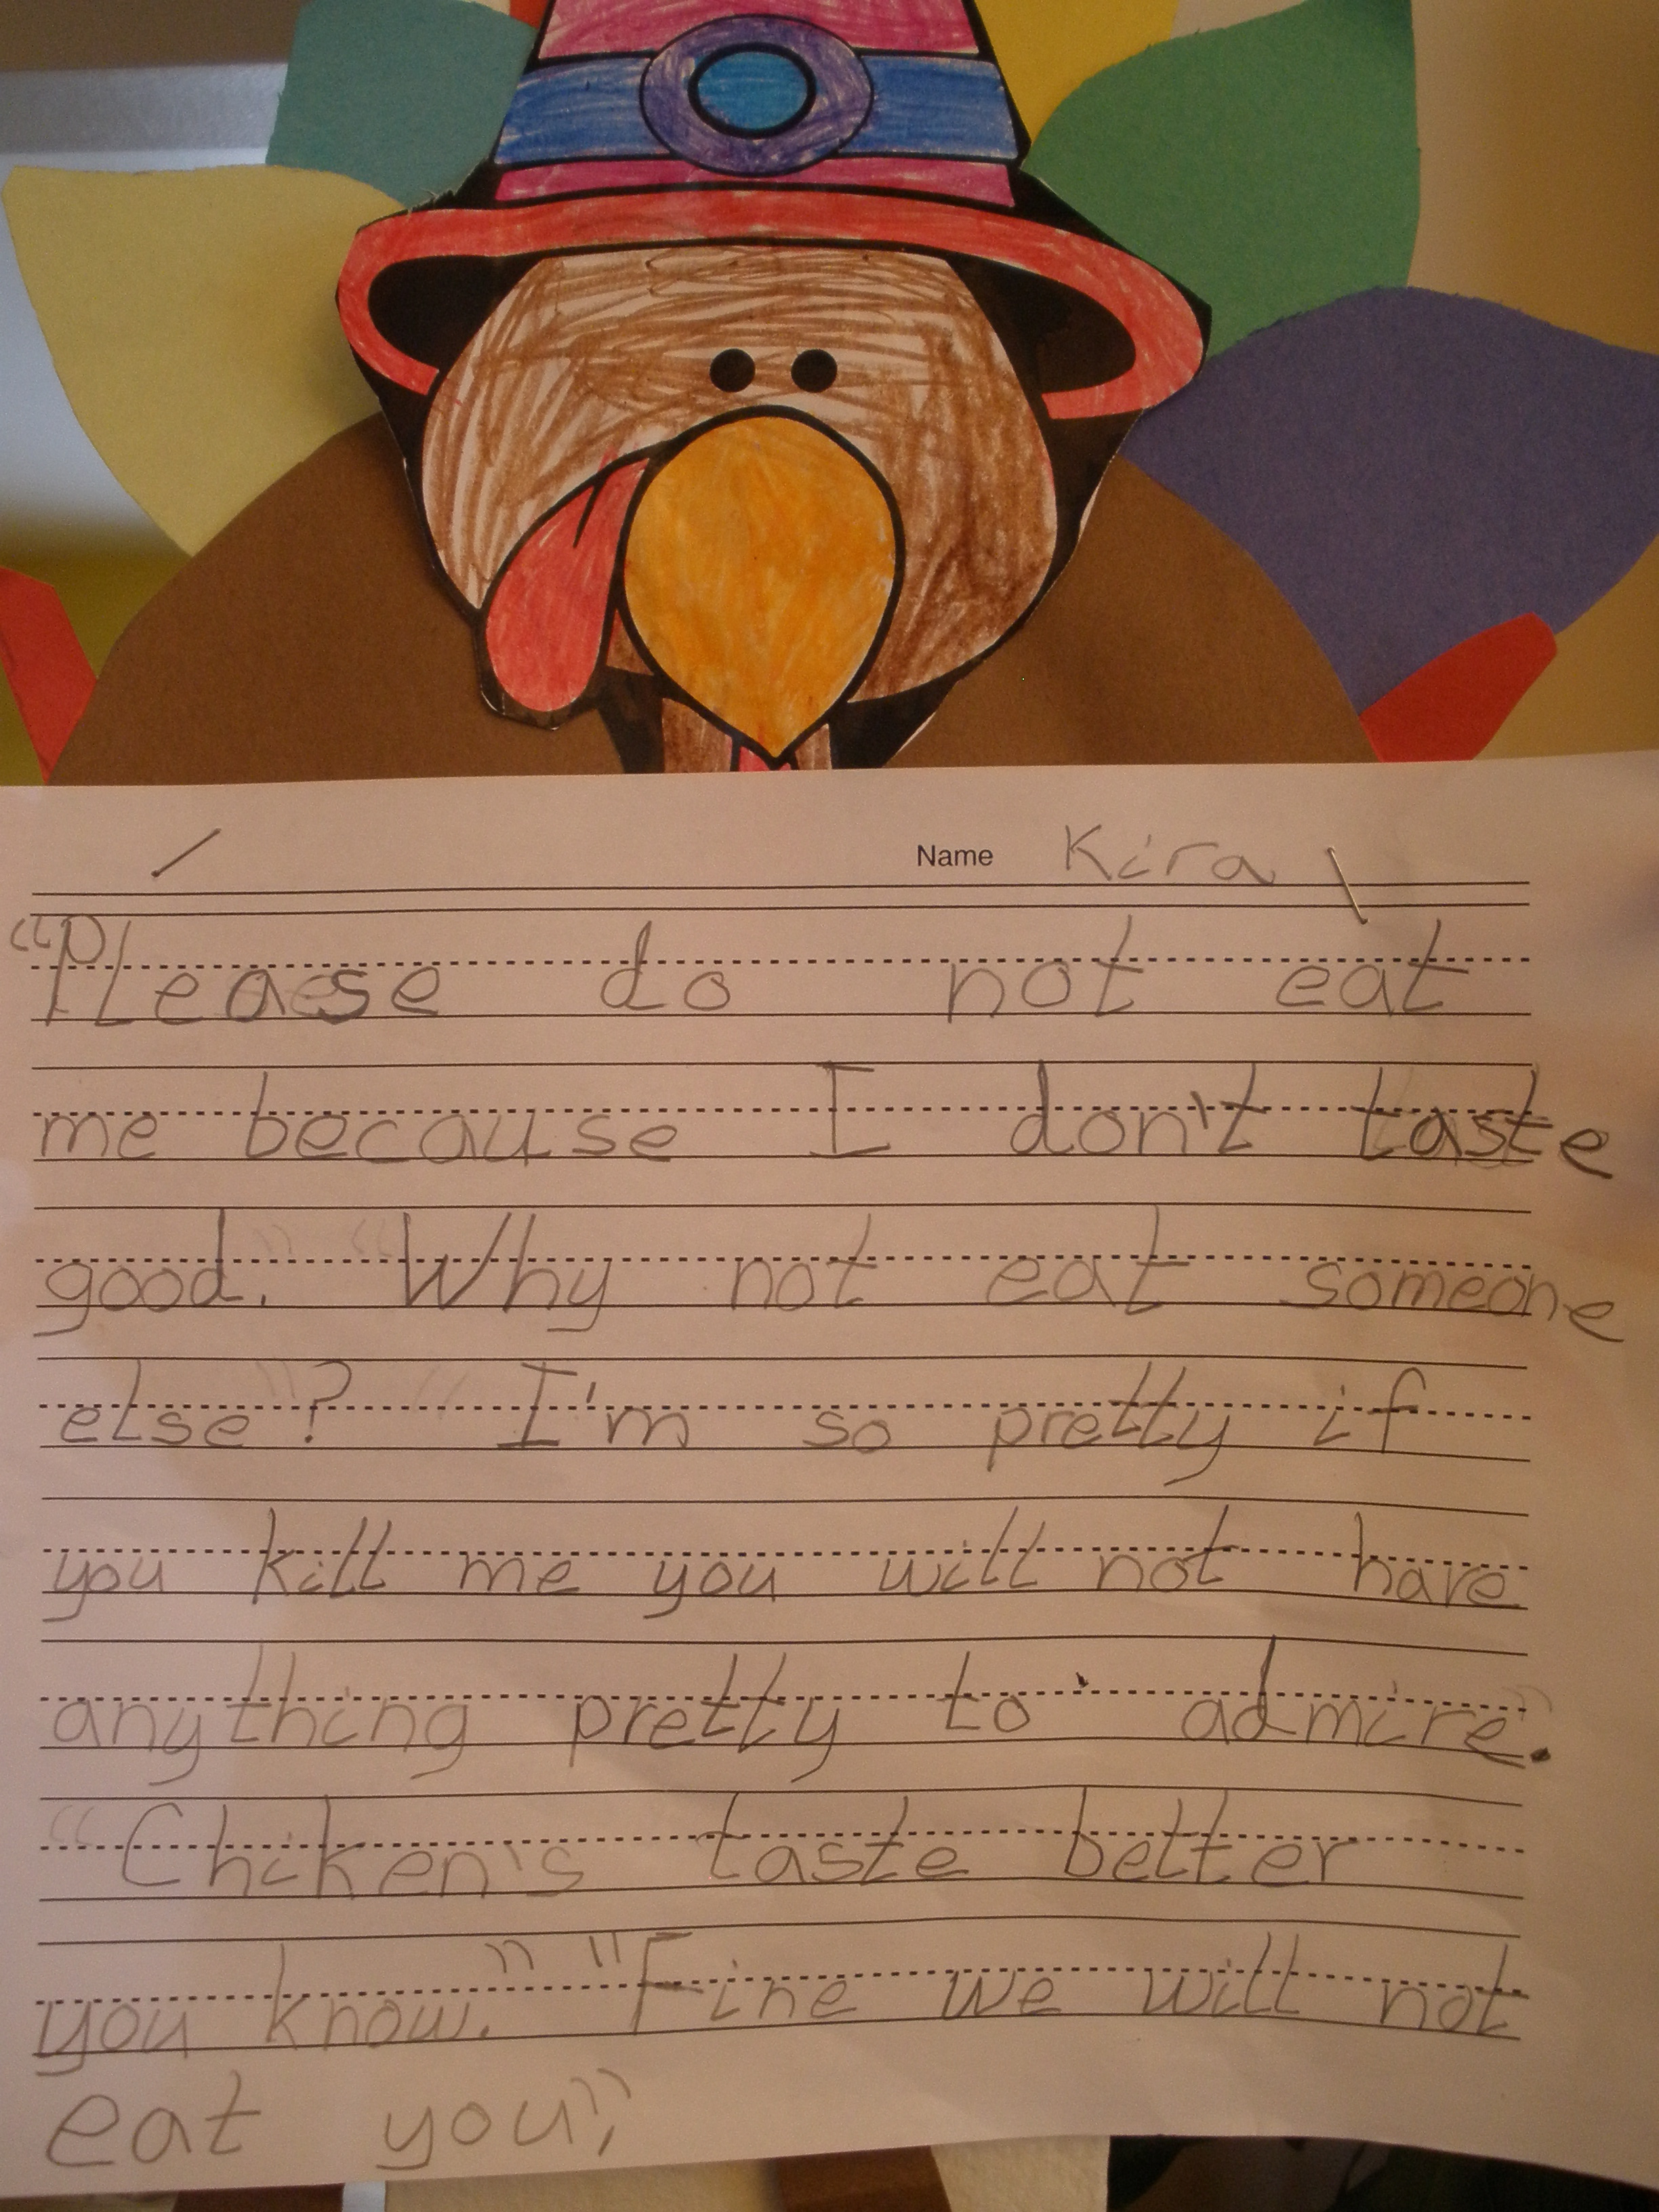 Name Kira
"Please do not eat
me because I don't taste
good. Why not eat someone
else? I'm so pretty if
you kill me you will not have
anything pretty to admire.
"Chiken's taste better
you know." "Fine we will not
eat you",